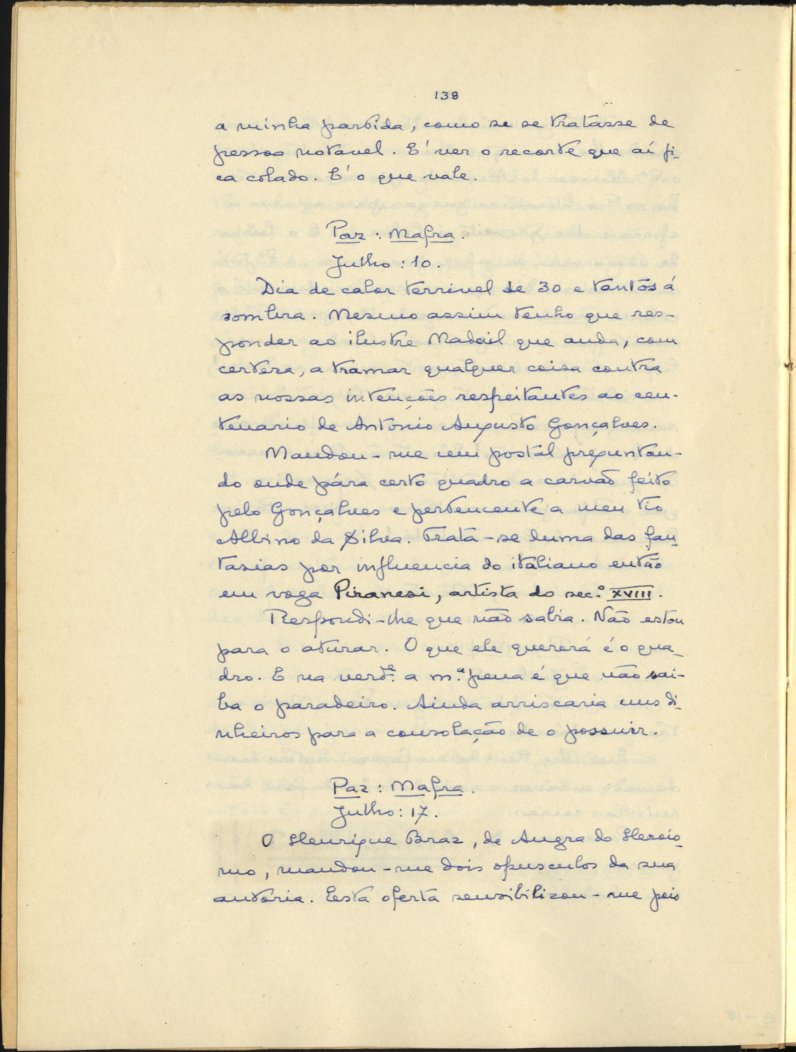 138
a minha partida, como se se tratasse de
pessoa notavel. E' ver o recorte que aí fi-
ca colado. E' o que vale.
Paz : Mafra.
Julho : 10.
Dia de calor terrivel de 30 e tantos á
sombra. Mesmo assim tenho que res-
ponder ao ilustre Madail que anda, com
certeza, a tramar qualquer coisa contra
as nossas intenções respeitantes ao cen-
tenario de Antonio Augusto Gonçalves.
Mandou-me um postal preguntan-
do onde pára certo quadro a carvão feito
pelo Gonçalves e pertencente a meu tio
Albino da Silva. Trata-se duma das fan-
tasias por influencia do italiano então
em voga Piranesi, artista do sec.º XVIII.
Respondi-lhe que não sabia. Não estou
para o aturar. O que ele quererá é o qua-
dro. E na verd.e a m.ª pena é que não sai-
ba o paradeiro. Ainda arriscaria uns di-
nheiros para a consolação de o possuir.
Paz : Mafra.
Julho : 17.
O Henrique Braz, de Angra do Herois-
mo, mandou-me dois opusculos da sua
autoria. Esta oferta sensibilizou-me pois